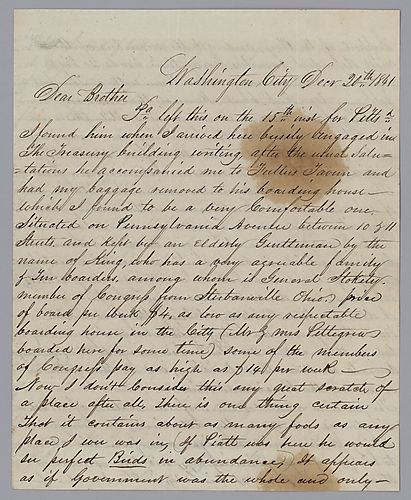 Washington City Decr 20th 1841
Dear Brother
Pa left this on the 15th inst for Pitts
I found him when I arrived here busily engaged in
The Treasury building, writing, after the usual Salu-
-tations he accompanied me to Fullers Tavern and
had my baggage removed to his boarding house—
which I found to be a very Comfortable one,
Situated on Pennsylvania Avenue between 10 & 11
Streets, and kept by an elderly Gentleman by the
name of King, who has a very agreeable family
& Ten boarders, among whom is General Stokely
member of Congress from Steubenville Ohio, price
of board per Week $4, as low as any respectable
boarding house in the City, (Mr & Mrs Pettegrew
boarded here for some time) some of the members
of Congress pay as high as $14 per week—
Now I don't Consider this any great scratch of
a place after all, There is one thing certain
That it contains about as many fools as any
place I ever was in, (if Piatt was here he would
see perfect Birds in abundance,) It appears
as if Government was the whole and only—